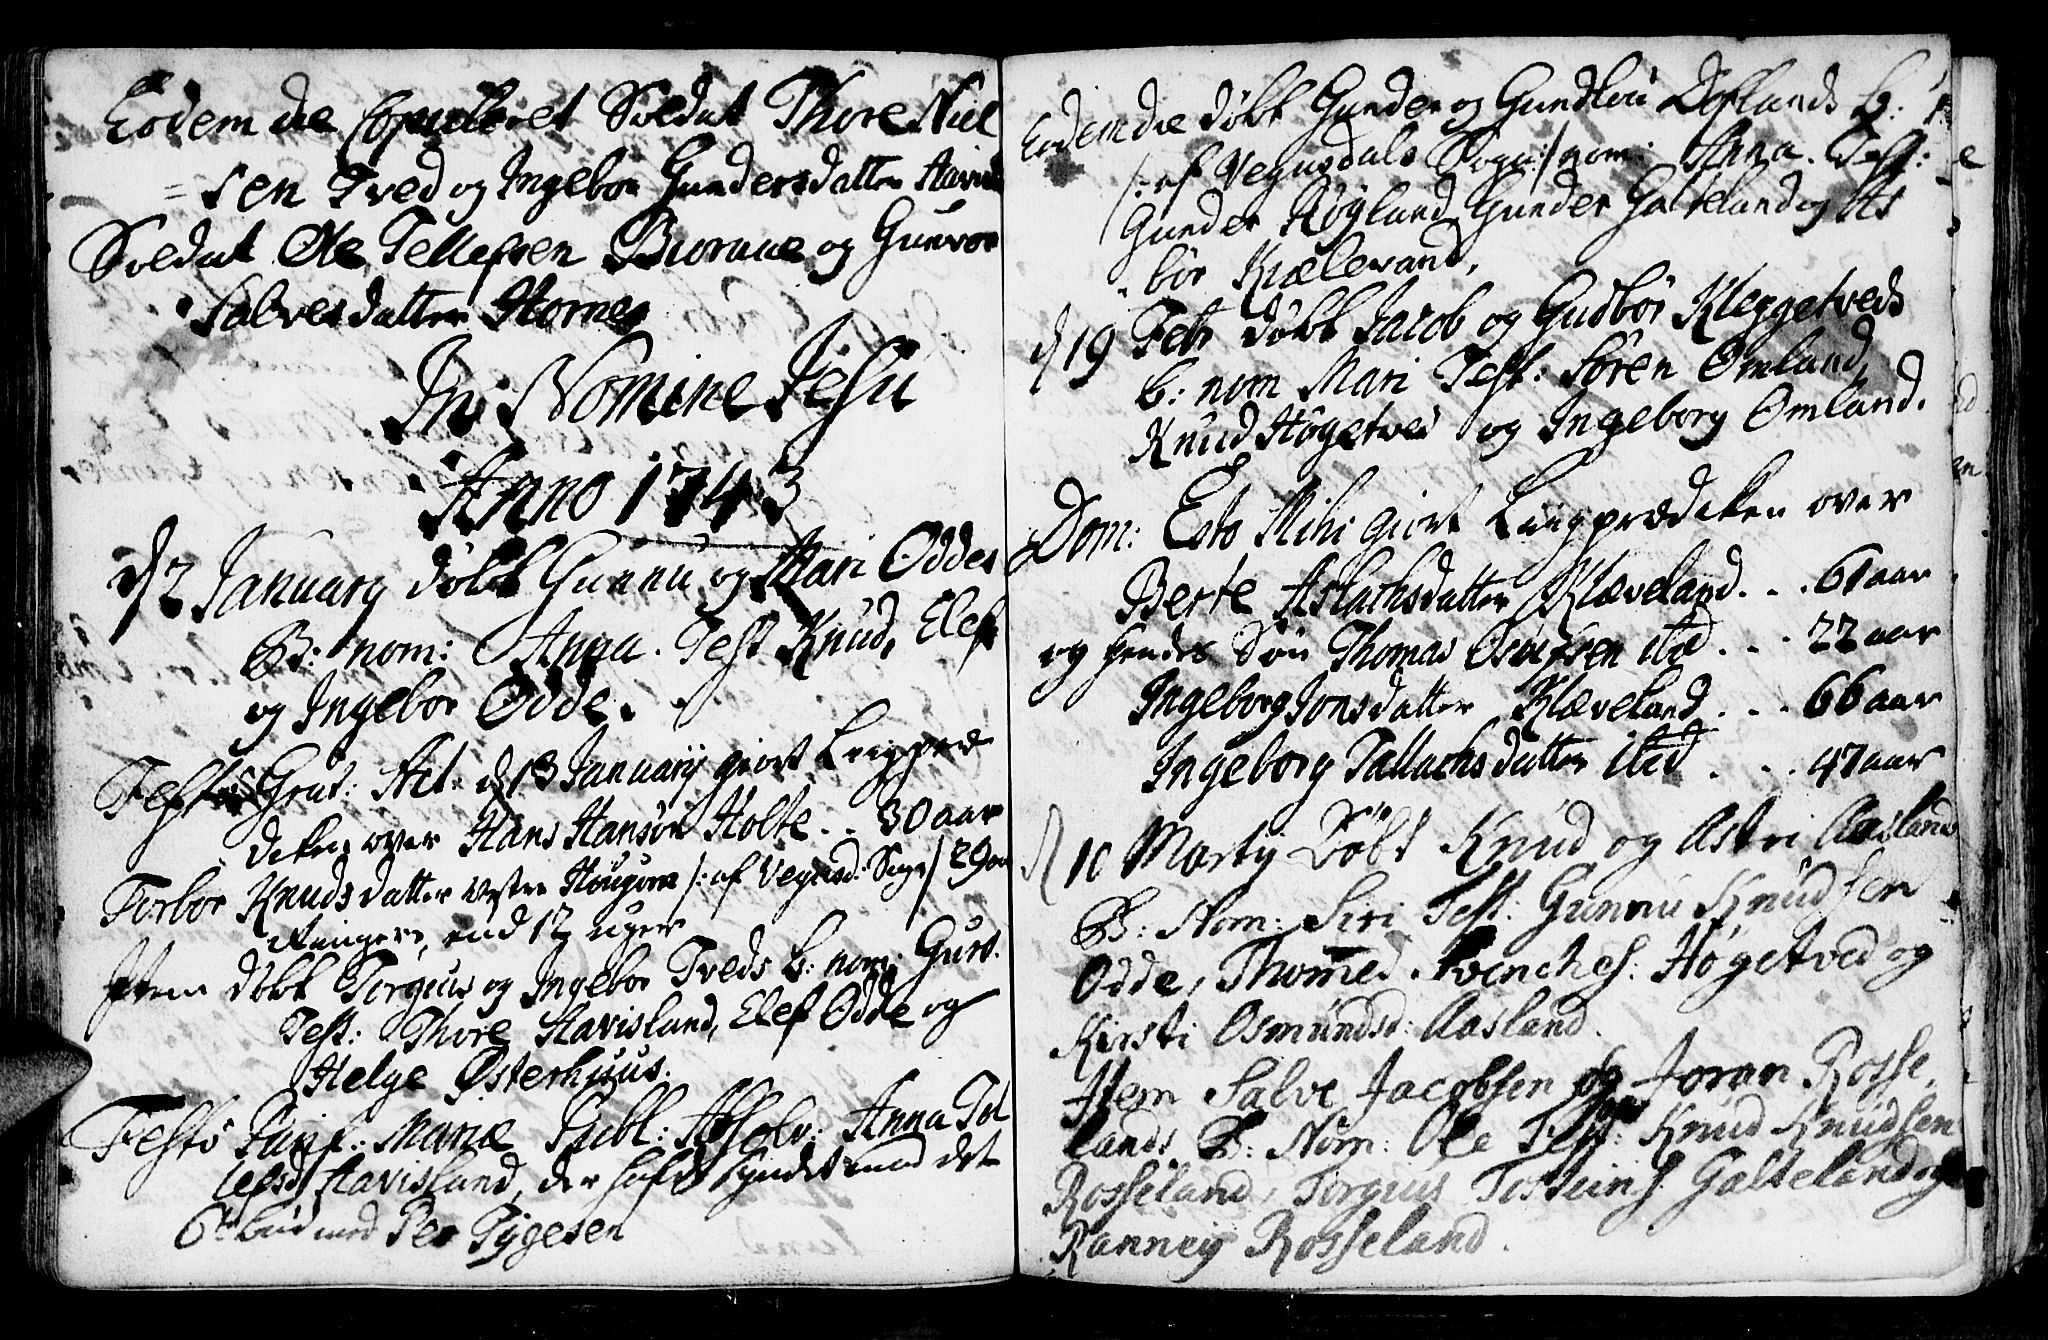 Eodem die Copuleret Soldat Thore Niel
= sen Tved og Ingebor Gundersdatter
Soldat Ole Tellefsen Biorane og Gunvor
Salvesdatter Hornes
In Nomine Jesu
Anno 1743
d 2 January døbt Gunnu og Mari Oddes
B: nom: Anna. Test Knud, Elef
og Ingebor Odde.
Festo Grat: Act: d 13 January giort Liigpræ
deken over Hans Hansøn Holte .. 30 aar
Torbor Knudsdatter vestre /: af Vegusd: Sogn/ 29 aar
Ringere, end 12 uger
Item døbt Torgius og Ingebor Tveds b: nom: Guro.
Test: Thore Havisland, Elef Odde og
Helge Østerhuus.
Festo Purif: Mariæ Publ: Absolv: Anna Tol
lefsd Havisland, der hafde syndet mod det
6te bud med Per Tygesen
Eodem die døbt Gunder og Gundlou Deflands b:
/: af Vegusdals Sogn:/ nom: Anna. Test:
Gunder Høyland, Gunder Galteland og As
bør Kiælevand,
d 19 Febr døbt Jacob og Gudbor Kleggetveds
b: nom Mari Test: Søren Omland,
Knud Høgetved og Ingeborg Omland.
Dom: Esto Mihi giort Liigprædeken over
Berte Aslachsdatter Klæveland. . . 61 aar
og hendes Søn Thomas Osulfsen ibid . . 22 aar
Ingeborg Jonsdatter Klæveland . . . 66 aar
Ingeborg Tallachsdatter ibid . . . 47 aar
d 10 Marty Døbt Knud og Astri Aaslands
B: Nom: Siri Test: Gunnu Knudsen
Odde, Thommes Svenches: Høgetved og
Kirsti Osmundsd: Aasland.
Item Salve Jacobsen og Joran Rosse
lands B: Nom: Ole Test: Knud Knudsen
Rosseland, Torgius Tosteins: Galteland og
Ranney Rosseland.